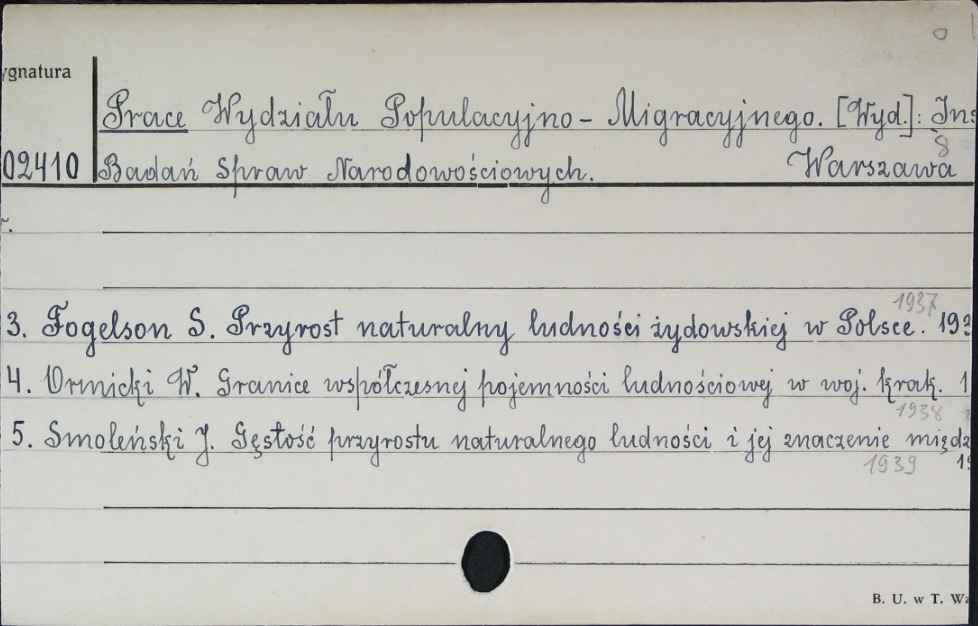 0
ygnatura
Prace Wydziału Populacyjno - Migracyjnego. [Wyd.]: Ins
8
02410 Badań Spraw Narodowościowych. Warszawa
r.
1937
3. Fogelson S. Przyrost naturalny ludności żydowskiej w Polsce. 193
4. Ormicki W. Granice współczesnej pojemności ludnościowej w woj. krak. 1
1938
5. Smoleński J. Gęstość przyrostu naturalnego ludności i jej znaczenie międz
1939 19
B. U. w T. Wz